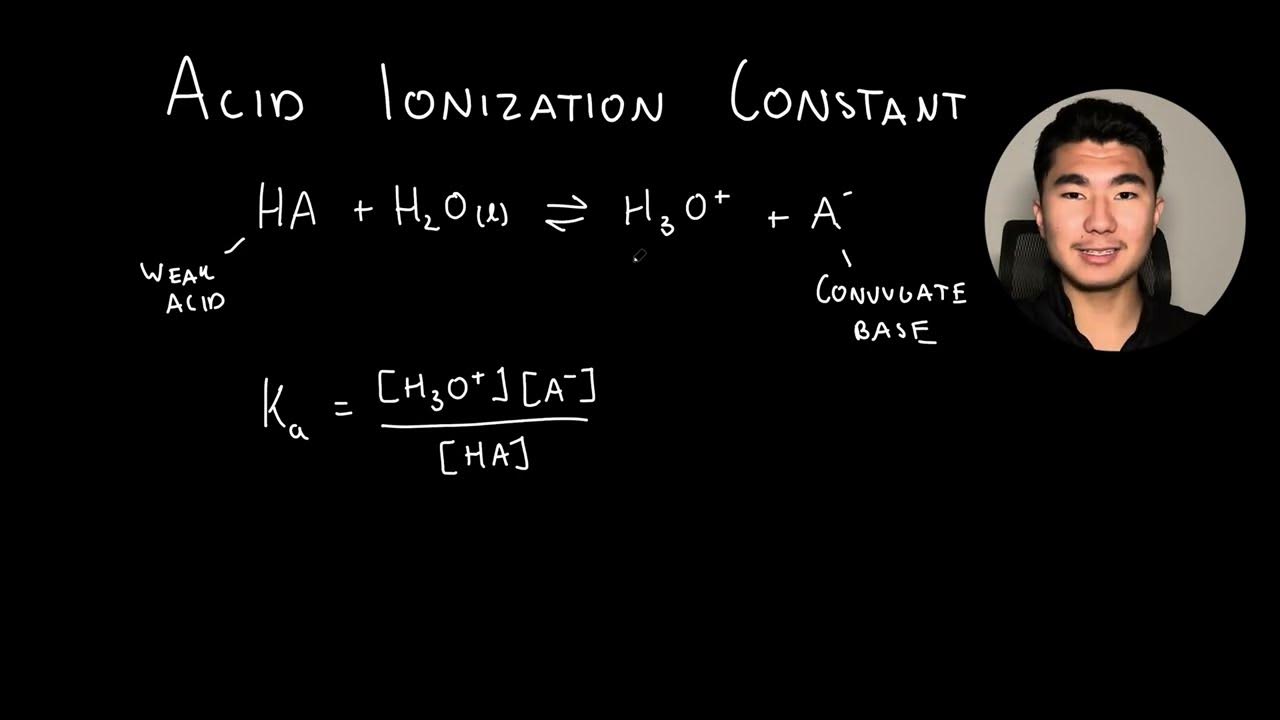 ACID IONIZATION CONSTANT
HA + H₂O(l) ⇌ H₃O⁺ + A⁻
WEAK
ACID
CONJUGATE
BASE
Kₐ = [H₃O⁺][A⁻]
[HA]